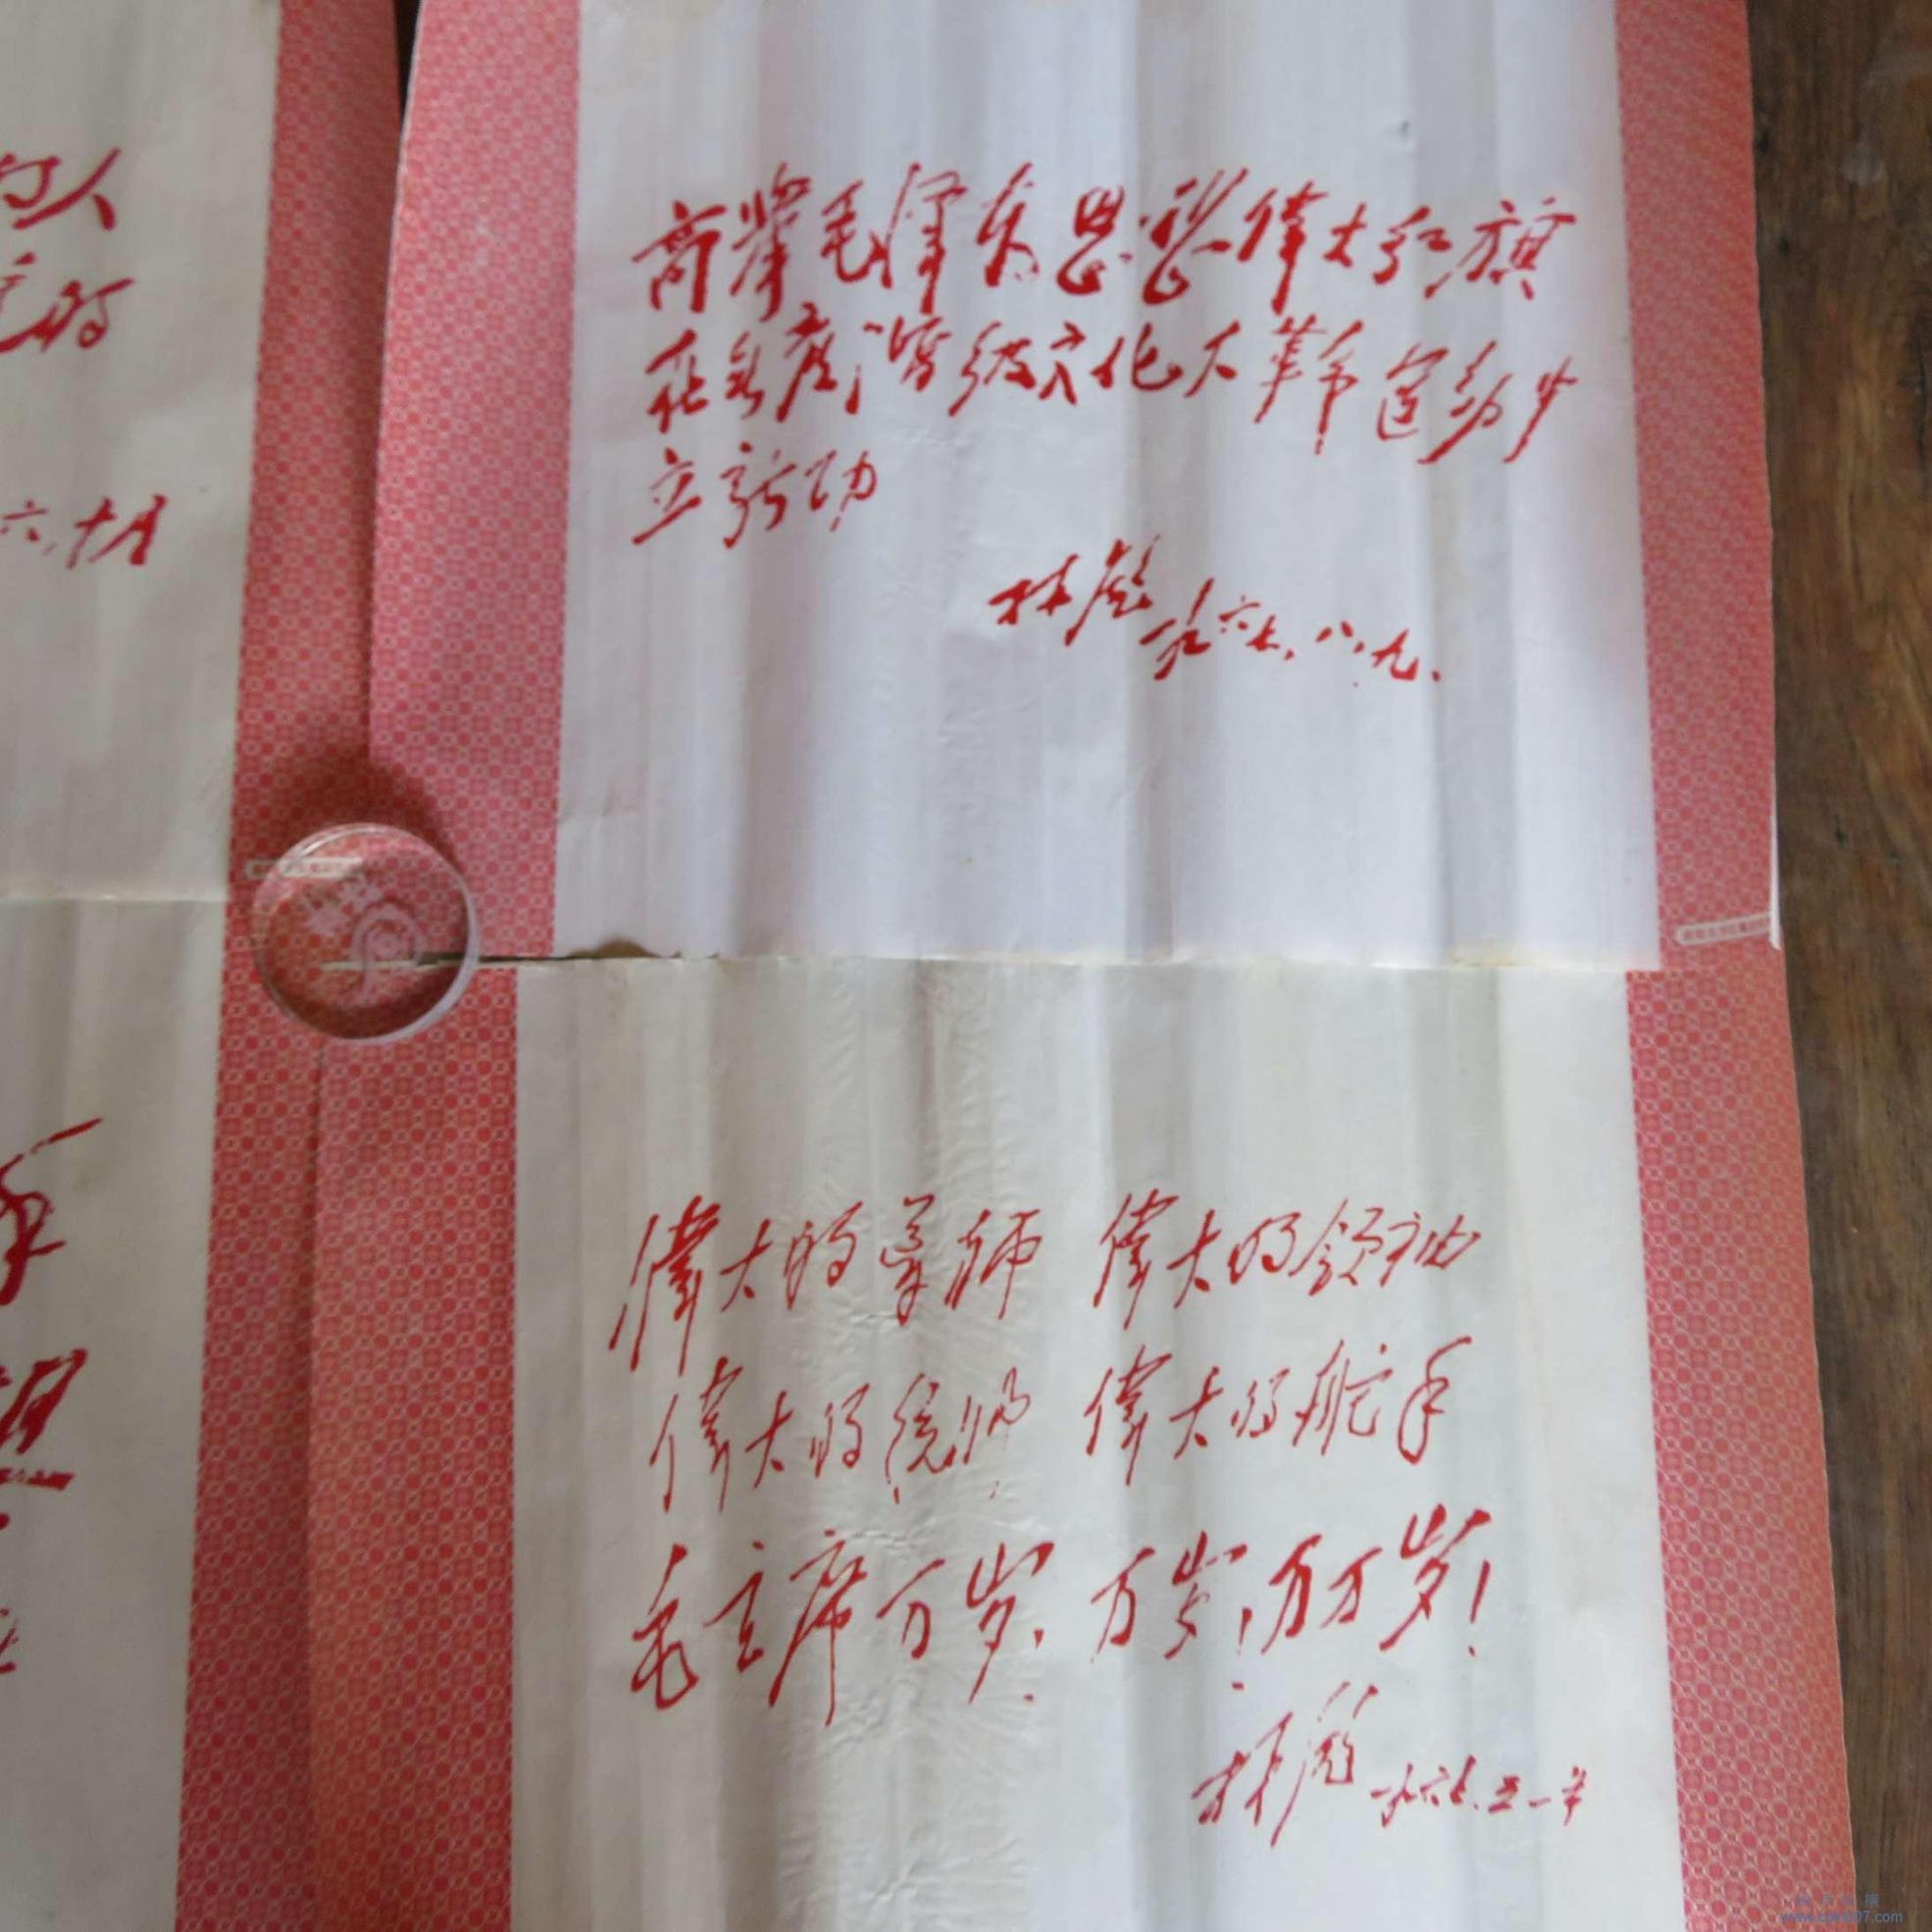 高举毛泽东思想偉大红旗
在无产阶级文化大革命运动中
立新功
林彪
一九六七,八,九.
偉大的导师 偉大的领袖
偉大的统帅 偉大的舵手
毛主席万岁、万岁!万万岁!
林彪 一九六七.五一
人
的
六,十月